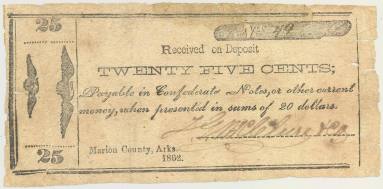 25
Received on Deposit
TWENTY FIVE CENTS;
Payable in Confederate Notes, or other current
money, when presented in sums of 20 dollars.
Marion County, Arks.
1862.
25